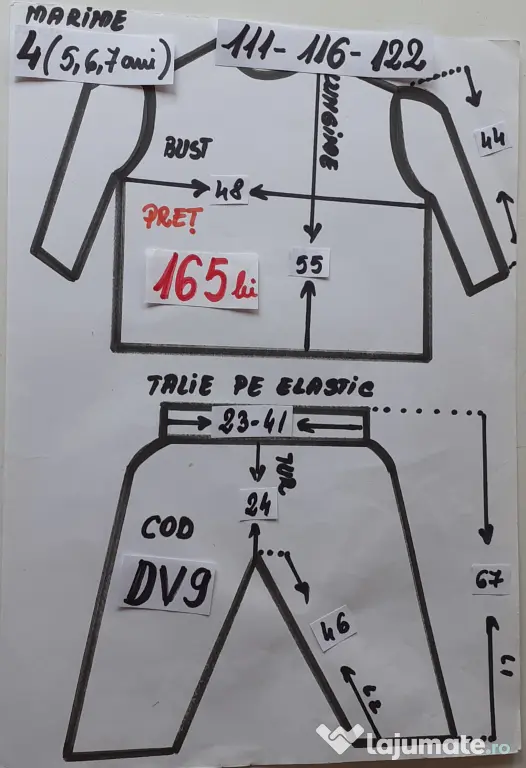 MARIME
4 (5,6,7 ani)
111-116-122
LUNGIME
44
BUST
48
PREȚ
165 lei
55
TALIE PE ELASTIC
23-41
TUR
24
COD
DV9
67
46
L1
L2
lajumate.ro